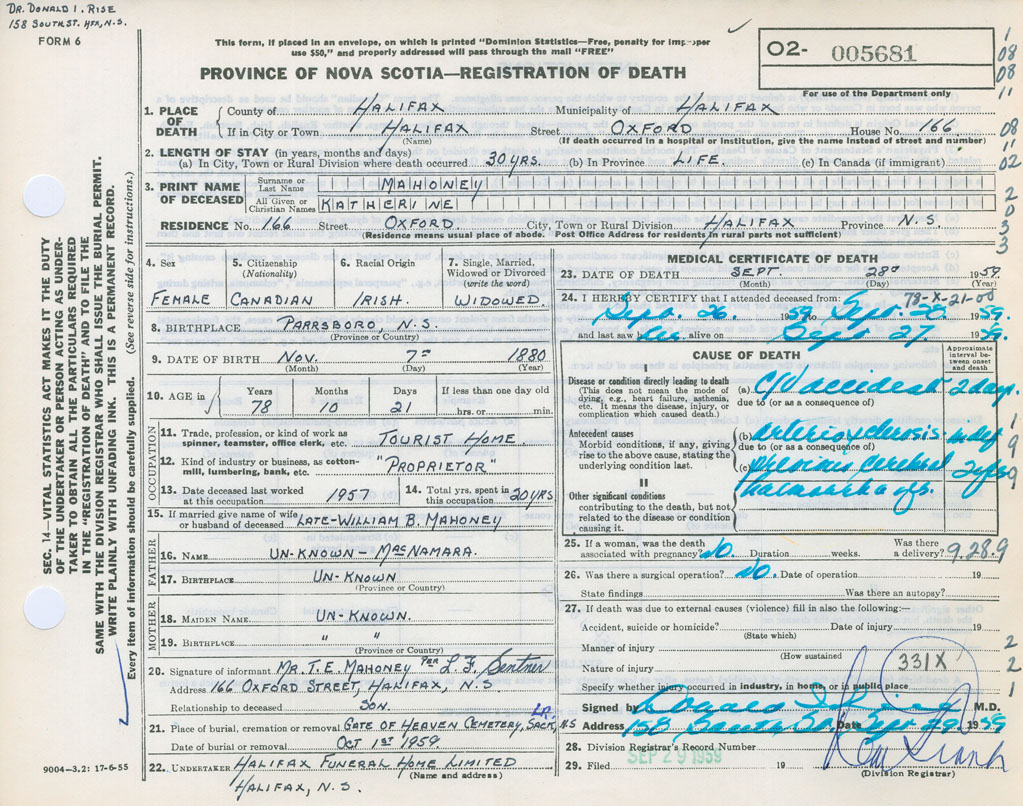 DR. DONALD I. RISE
158 SOUTH ST. HFX, N.S.
FORM 6
This form, if placed in an envelope, on which is printed "Dominion Statistics—Free, penalty for improper
use $50," and properly addressed will pass through the mail "FREE"
PROVINCE OF NOVA SCOTIA—REGISTRATION OF DEATH
O2- 005681
For use of the Department only
1
08
08
11
08
11
02
2
0
3
3
SEC. 14—VITAL STATISTICS ACT MAKES IT THE DUTY
OF THE UNDERTAKER OR PERSON ACTING AS UNDER-
TAKER TO OBTAIN ALL THE PARTICULARS REQUIRED
IN THE "REGISTRATION OF DEATH" AND TO FILE THE
SAME WITH THE DIVISION REGISTRAR WHO SHALL ISSUE THE BURIAL PERMIT.
WRITE PLAINLY WITH UNFADING INK. THIS IS A PERMANENT RECORD.
Every item of information should be carefully supplied. (See reverse side for instructions.)
1. PLACE OF DEATH
County of HALIFAX Municipality of HALIFAX
If in City or Town HALIFAX Street OXFORD House No. 166
(Name) (If death occurred in a hospital or institution, give the name instead of street and number)
2. LENGTH OF STAY (in years, months and days)
(a) In City, Town or Rural Division where death occurred 30 YRS. (b) In Province LIFE. (c) In Canada (if immigrant)
3. PRINT NAME OF DECEASED
Surname or Last Name MAHONEY
All Given or Christian Names KATHERINE
RESIDENCE No. 166 Street OXFORD City, Town or Rural Division HALIFAX Province N.S
(Residence means usual place of abode. Post Office Address for residents in rural parts not sufficient)
4. Sex
FEMALE
5. Citizenship (Nationality)
CANADIAN
6. Racial Origin
IRISH.
7. Single, Married, Widowed or Divorced (write the word)
WIDOWED
8. BIRTHPLACE PARRSBORO, N.S.
(Province or Country)
9. DATE OF BIRTH NOV. 7TH 1880
(Month) (Day) (Year)
10. AGE in
Years 78
Months 10
Days 21
If less than one day old
hrs. or min.
OCCUPATION
11. Trade, profession, or kind of work as
spinner, teamster, office clerk, etc. TOURIST HOME.
12. Kind of industry or business, as cotton-
mill, lumbering, bank, etc. "PROPRIETOR"
13. Date deceased last worked
at this occupation 1957
14. Total yrs. spent in
this occupation 20 YRS
15. If married give name of wife
or husband of deceased LATE-WILLIAM B. MAHONEY
FATHER
16. NAME UN-KNOWN - MACNAMARA.
17. BIRTHPLACE UN-KNOWN
(Province or Country)
MOTHER
18. MAIDEN NAME UN-KNOWN.
19. BIRTHPLACE " "
(Province or Country)
20. Signature of informant MR. T.E. MAHONEY PER L.F. Sentner
Address 166 OXFORD STREET, HALIFAX, N.S
Relationship to deceased SON.
21. Place of burial, cremation or removal GATE OF HEAVEN CEMETERY, LR. SACK, N.S
Date of burial or removal OCT 1ST 1959.
22. UNDERTAKER HALIFAX FUNERAL HOME LIMITED
(Name and address)
HALIFAX, N.S.
9004-3.2: 17-6-55
MEDICAL CERTIFICATE OF DEATH
23. DATE OF DEATH SEPT. 28TH 1959.
(Month) (Day) (Year)
78-X-21-00
24. I HEREBY CERTIFY that I attended deceased from:
Sept. 26. 1959 to Sept. 28 1959.
and last saw her alive on Sept 27. 1959.
CAUSE OF DEATH
Approximate interval between onset and death
I
Disease or condition directly leading to death
(This does not mean the mode of
dying, e.g., heart failure, asthenia,
etc. It means the disease, injury, or
complication which caused death.)
(a) C/V accident 2 days.
due to (or as a consequence of)
Antecedent causes
Morbid conditions, if any, giving
rise to the above cause, stating the
underlying condition last.
(b) arteriosclerosis indef
due to (or as a consequence of)
(c) Previous cerebral 2 yrs
II
Other significant conditions
contributing to the death, but not
related to the disease or condition
causing it.
1
9
9
25. If a woman, was the death
associated with pregnancy? No. Duration weeks.
Was there a delivery? 9.28.9
26. Was there a surgical operation? No. Date of operation 19
State findings Was there an autopsy?
27. If death was due to external causes (violence) fill in also the following:—
Accident, suicide or homicide? Date of injury 19
(State which)
Manner of injury
(How sustained)
Nature of injury 331X
Specify whether injury occurred in industry, in home, or in public place
2
2
1
Signed by M.D.
Address 158 South St. Date Sept 29 1959
28. Division Registrar's Record Number
29. Filed SEP 29 1959 19
(Division Registrar)